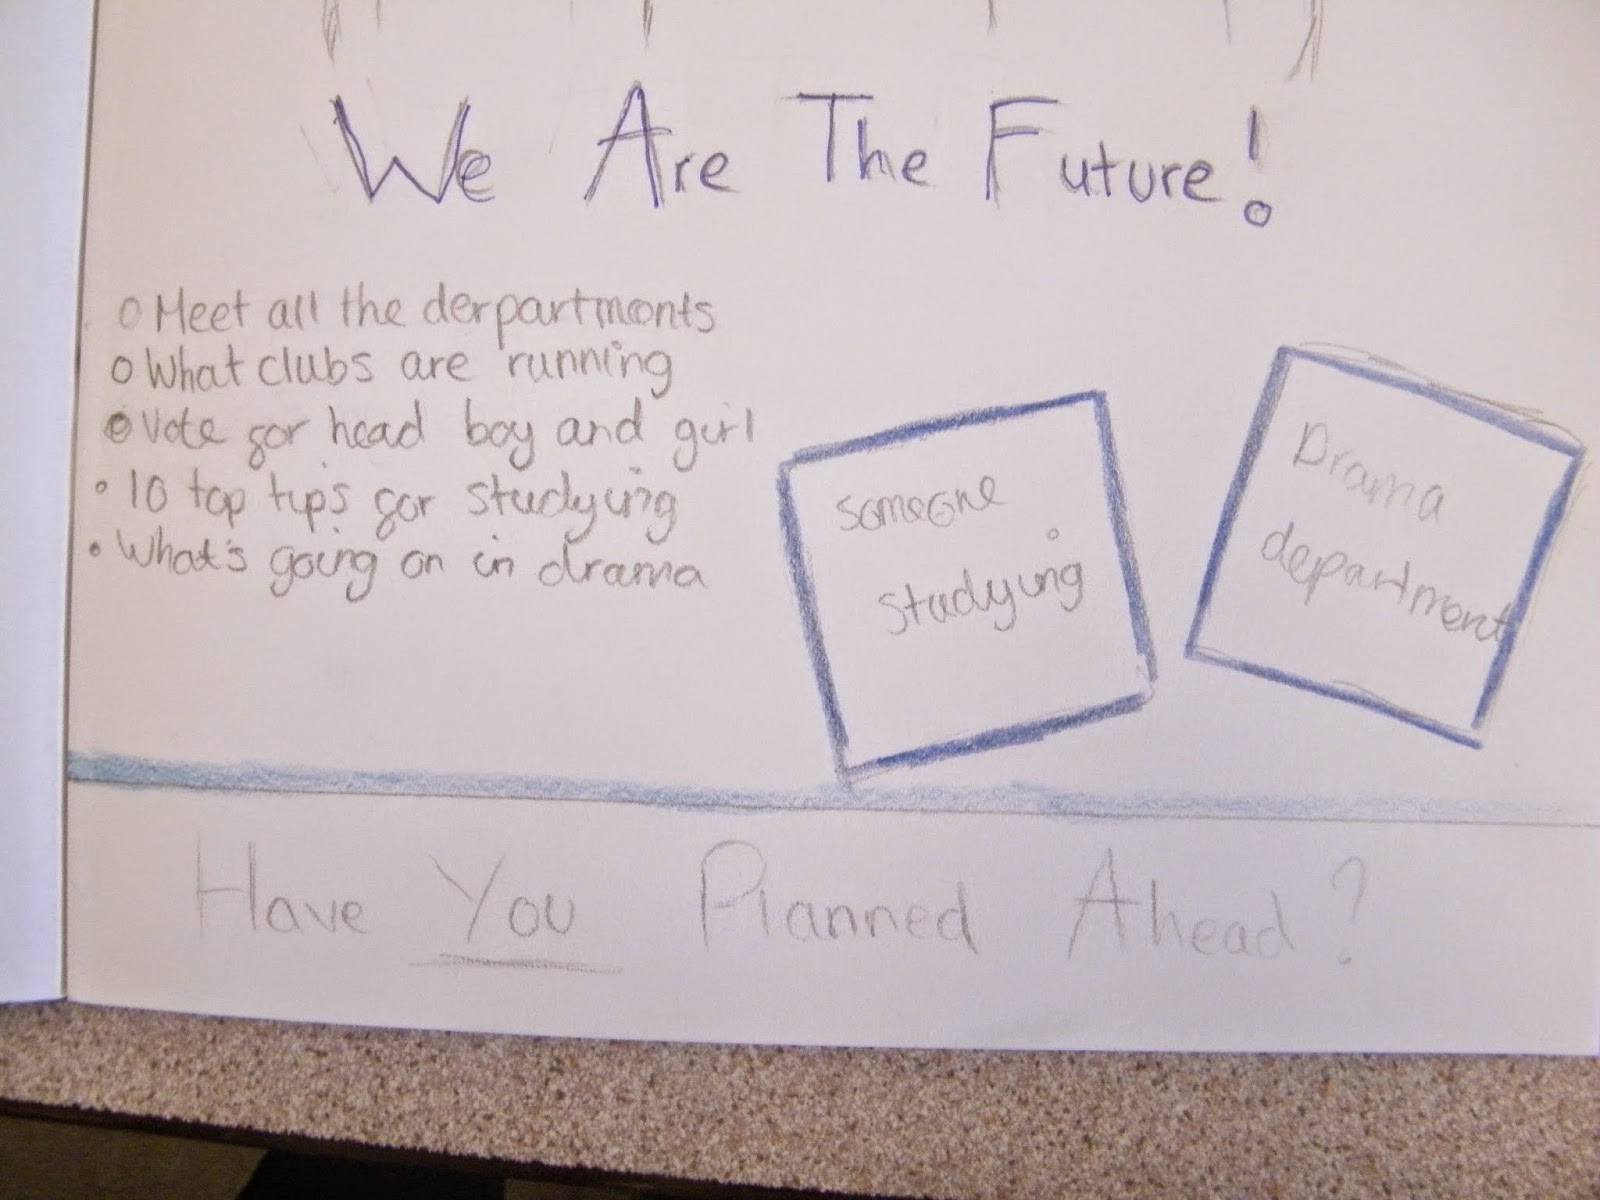 We Are The Future!
Meet all the derpartments
What clubs are running
Vote for head boy and girl
10 top tips for studying
What's going on in drama
someone
studying
Drama
department
Have You Planned Ahead?